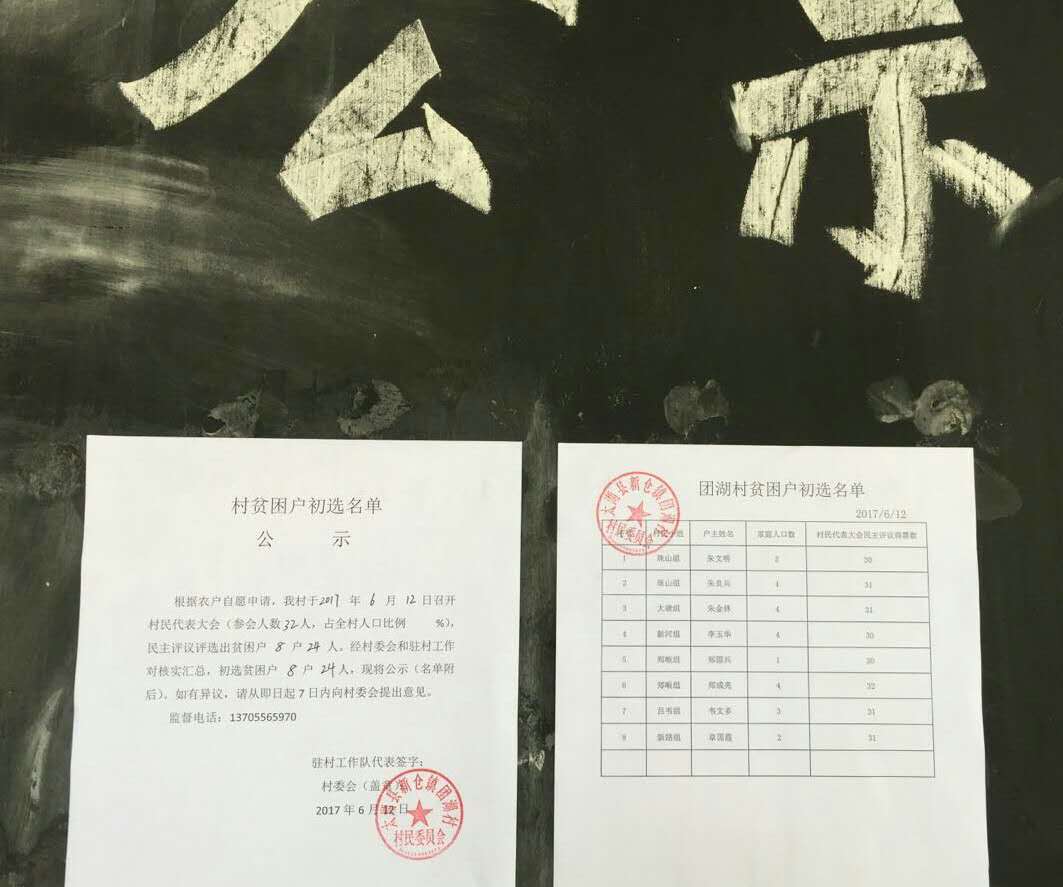 公示
村贫困户初选名单
公 示
根据农户自愿申请，我村于2017 年 6 月 12 日召开
村民代表大会（参会人数32人，占全村人口比例 %），
民主评议评选出贫困户 8 户 24 人。经村委会和驻村工作
对核实汇总，初选贫困户 8 户 24人，现将公示（名单附
后）。如有异议，请从即日起 7 日内向村委会提出意见。
监督电话：13705565970
驻村工作队代表签字：
村委会（盖章）
2017 年 6 月 12 日
太湖县新仓镇团湖村
村民委员会
太湖县新仓镇团湖村
村民委员会
团湖村贫困户初选名单
2017/6/12
组 户主姓名 家庭人口数 村民代表大会民主评议得票数
1 珠山组 朱文明 2 30
2 珠山组 朱良兵 4 31
3 大塘组 朱金林 4 31
4 新河组 李玉华 4 30
5 郑畈组 郑国兵 1 30
6 郑畈组 郑成亮 4 32
7 吕韦组 韦文多 3 31
8 新塘组 章国霞 2 31